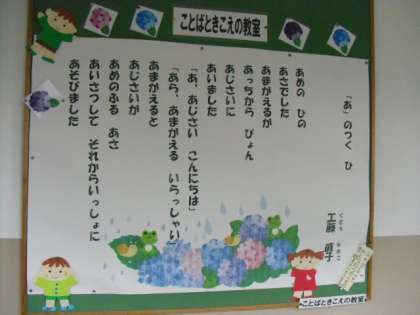 ことばときこえの教室
「あ」のつく ひ
くどう なおこ
工藤 直子
あめの ひの
あさでした
あまがえるが
あっちから ぴょん
あじさいに
あいました
「あ、あじさい こんにちは」
「あら、あまがえる いらっしゃい」
あまがえると
あじさいが
あめのふる あさ
あいさつして それからいっしょに
あそびました
ことばときこえの教室